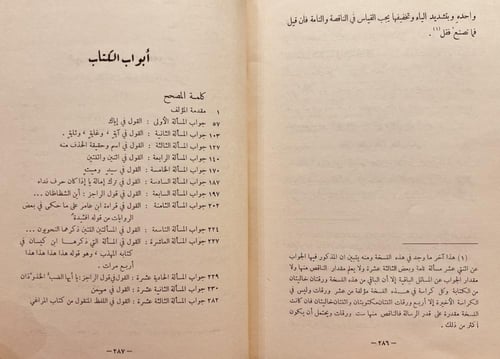 واحده وبتشديد الياء وتخفيفها يجب القياس في الناقصة والتامة فأن قيل
فما نصنع فقل (١) .
(١) هذا آخر ما وجد في هذه النسخة ومنه يتبين ان المذكور فيها الجواب
عن اثنتي عشر مسألة تاما وبعض الثالثة عشرة ولا يعلم مقدار الناقص منها ولا
مقدار الجواب عن المسائل الباقية إلا أن الباقي من هذه النسخة ورقتان خاليتان
من الكتابة وكل كراسة في هذه النسخة مؤلفة من عشر ورقات وليس في
الكراسة الأخيرة إلا أربع ورقات اثنتان مكتوبتان واثنتان خاليتان فان كانت
النسخة مقدرة على قدر الرسالة فالناقص منها ست ورقات ويحتمل أن يكون
أكثر من ذلك .
— ٢٨٦ —
أبواب الكتاب
كلمة المصحح
مقدمة المؤلف ١
جواب المسألة الأولى : القول في إياك ٥٧
جواب المسألة الثانية : القول في آيةٍ ، وغايةٍ ، وثايةٍ . ١٠٣
جواب المسألة الثالثة : القول في اسم وحقيقة الحذف منه ١٢٧
جواب المسألة الرابعة : القول في اثنين واثنتين ١٤٠
جواب المسألة الخامسة : القول في سيد وميت ١٧٠
جواب المسألة السادسة : القول في ترك إمالة يا إذا كان حرف نداء ١٨٧
جواب المسألة السابعة : القول في قول الراجز : أين الشظاظان ١٩٧
جواب المسألة الثامنة : القول في قراءة ابن عامر على ما حكي في بعض ٢٠٢
الروايات من قوله افئيدة
جواب المسألة التاسعة : القول في المسألتين اللتين ذكرهما النحويون ... ٢٢١
جواب المسألة العاشرة : القول في المسألة التي ذكرها ابن كيسان في ٢٢٧
كتابه المهذب ، وهو قوله هذا هذا هذا هذا
أربع مرات .
جواب المسألة الحادية عشرة : القول في قول الراجز : يا أيها الضب الخذوذان ٢٢٩
جواب المسألة الثانية عشرة : القول في مهيمن ٢٣٠
جواب المسألة الثالثة عشرة : القول في اللفظ المنقول من كتاب المراغي ٢٨٢
— ٢٨٧ —